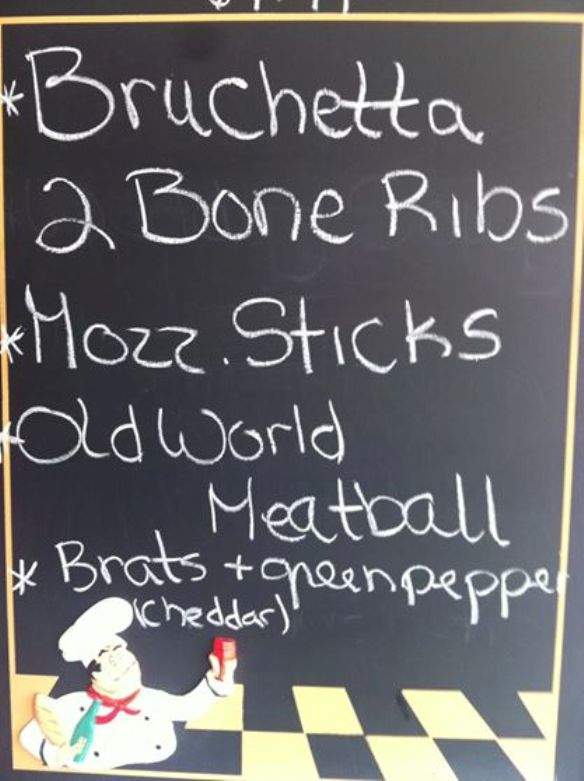 *Bruchetta
2 Bone Ribs
*Mozz. Sticks
*Old World
Meatball
* Brats + greenpepper
(cheddar)